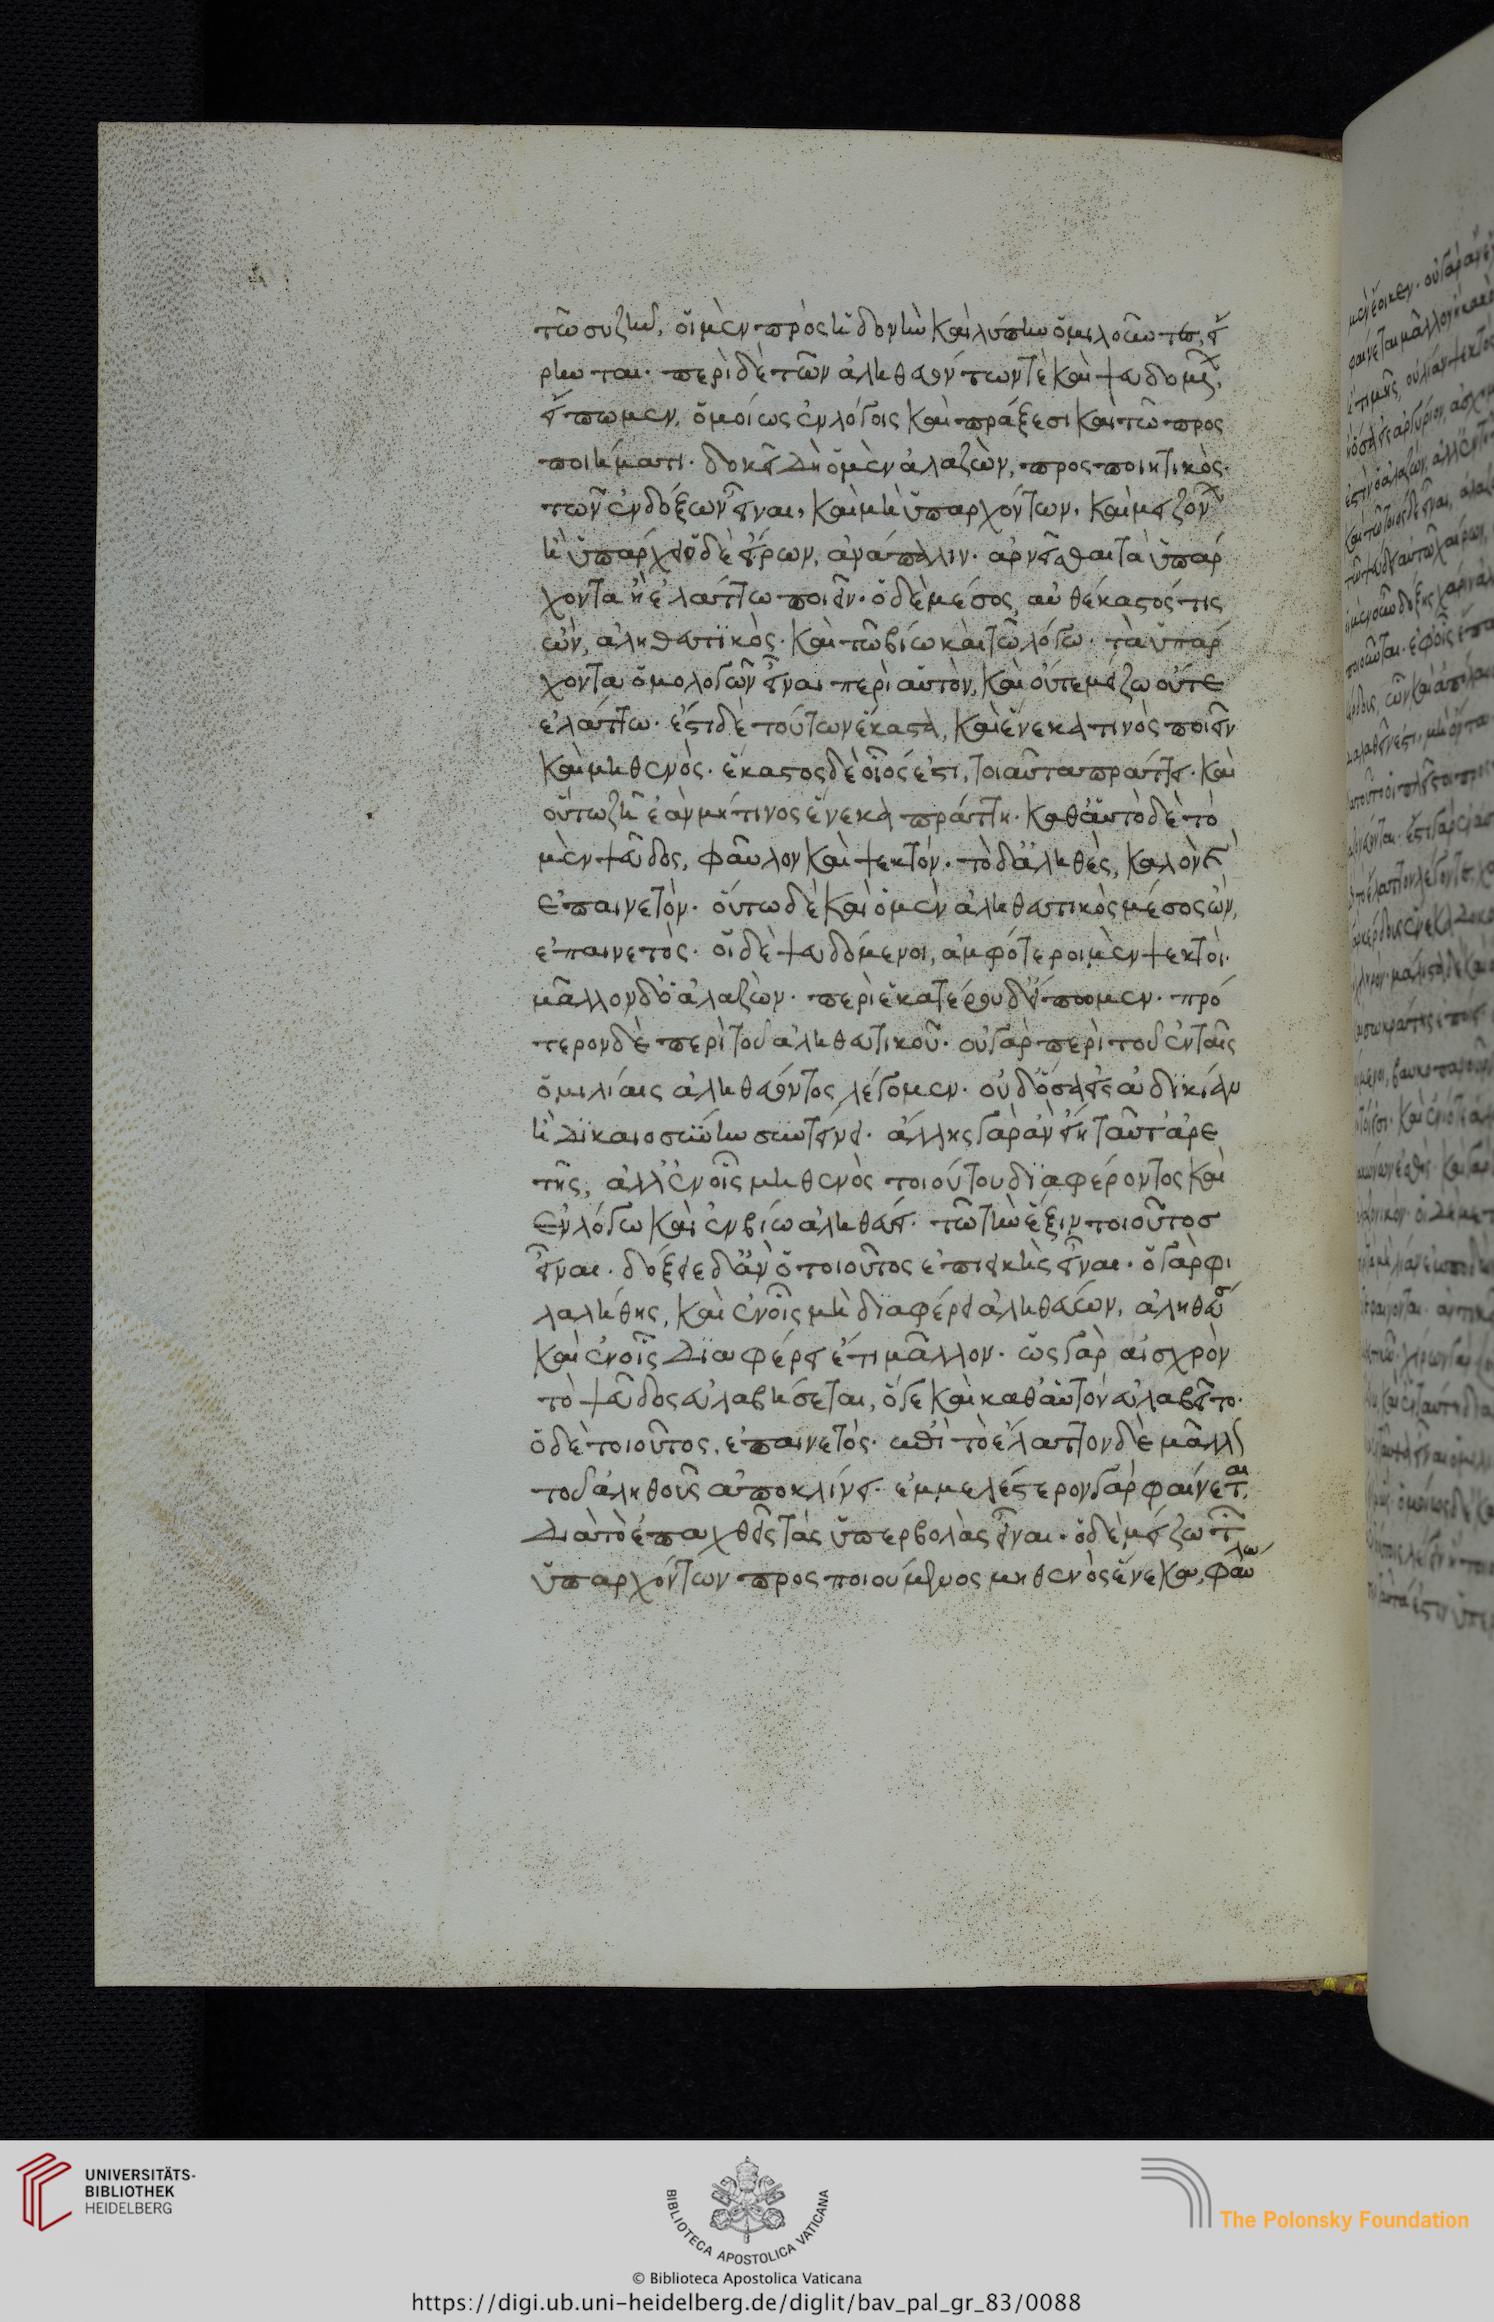 τῶ συζῆν, οἱ μὲν πρὸς ἡδονὴν καὶ λύπην ὁμιλοῦντες, εἴ
ρηνται. περὶ δὲ τῶν ἀληθευόντων τὲ καὶ ψευδομένων,
εἴπωμεν, ὁμοίως ἐν λόγοις καὶ πράξεσι καὶ τῶ προς
ποιήματι. δοκεῖ δὴ ὁ μὲν ἀλαζὼν, προςποιητικὸς
τῶν ἐνδόξων εἶναι, καὶ μὴ ὑπαρχόντων, καὶ μειζόνων
ἢ ὑπάρχει· ὁ δὲ εἴρων, ἀνάπαλιν. ἀρνεῖσθαι τὰ ὑπάρ
χοντα ἢ ἐλάττω ποιεῖν. ὁ δὲ μέσος, αὐθέκαστός τις
ὢν, ἀληθευτϊκὸς. καὶ τῶ βίω καὶ τῶ λόγω. τὰ ὑπάρ
χοντα ὁμολογῶν εἶναι περὶ αὑτὸν, καὶ οὔτε μείζω οὔτε
ἐλάττω. ἔστι δὲ τούτων ἕκαστα, καὶ ἕνεκά τινὸς ποιεῖν
καὶ μηθενὸς. ἕκαστος δὲ οἷός ἐστι, τοιαῦτα πράττει. καὶ
οὕτω ζῆ ἐὰν μή τινος ἕνεκα πράττη. καθ' αὑτὸ δὲ τὸ
μὲν ψεῦδος, φαῦλον καὶ ψεκτόν. τὸ δ' ἀληθὲς, καλὸν καὶ
ἐπαινετὸν. οὕτω δὲ καὶ ὁ μὲν ἀληθευτικὸς μέσος ὢν,
ἐπαινετὸς. οἱ δὲ ψευδόμενοι, ἀμφότεροι μὲν ψεκτοὶ.
μᾶλλον δ' ὁ ἀλαζὼν. περὶ ἑκατέρου δ' εἴπωμεν. πρό
τερον δὲ περὶ τοῦ ἀληθευτικοῦ. οὐ γὰρ περὶ τοῦ ἐν ταῖς
ὁμιλίαις ἀληθεύοντος λέγομεν. οὐδ' ὅσα εἰς ἀδϊκίαν
ἢ δϊκαιοσύνην συντείνει. ἄλλης γὰρ ἂν εἴη ταῦτ' ἀρε
τῆς, ἀλλ' ἐν οἷς μηθενὸς τοιούτου δϊαφέροντος καὶ
ἐν λόγω καὶ ἐν βίω ἀληθεύει. τῶ τὴν ἕξιν τοιοῦτος
εἶναι. δόξειε δ' ἂν ὁ τοιοῦτος ἐπιεικὴς εἶναι. ὁ γὰρ φι
λαλήθης, καὶ ἐν οἷς μὴ δϊαφέρει ἀληθεύων, ἀληθεύσει
καὶ ἐν οἷς δϊαφέρει ἔτι μᾶλλον. ὡς γὰρ αἰσχρὸν
τὸ ψεῦδος εὐλαβήσεται, ὅ γε καὶ καθ' αὑτὸν εὐλαβεῖτο.
ὁ δὲ τοιοῦτος, ἐπαινετός. ἐπὶ τὸ ἔλαττον δὲ μᾶλλον
τοῦ ἀληθοῦς ἀποκλίνει. ἐμμελέστερον γὰρ φαίνεται.
διὰ τὸ ἐπαχθεῖς τὰς ὑπερβολὰς εἶναι. ὁ δὲ μείζω τῶν
ὑπαρχόντων προςποιούμενος μηθενὸς ἕνεκα, φαύλω
UNIVERSITÄTS-
BIBLIOTHEK
HEIDELBERG
BIBLIOTECA APOSTOLICA VATICANA
The Polonsky Foundation
© Biblioteca Apostolica Vaticana
https://digi.ub.uni-heidelberg.de/diglit/bav_pal_gr_83/0088